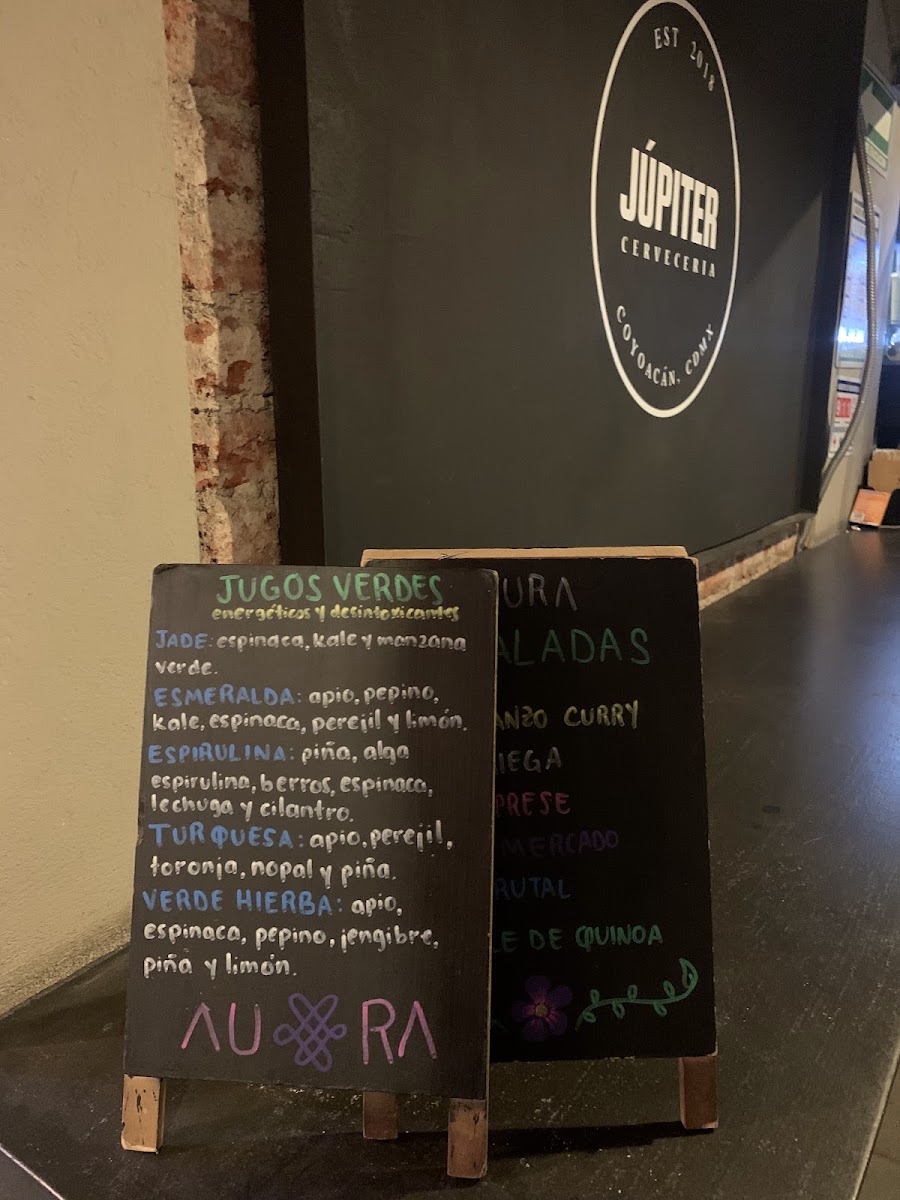 EST 2018
JÚPITER
CERVECERIA
COYOACÁN, CDMX
JUGOS VERDES
energéticos y desintoxicantes
JADE: espinaca, kale y manzana
verde.
ESMERALDA: apio, pepino,
kale, espinaca, perejil y limón.
ESPIRULINA: piña, alga
espirulina, berros, espinaca,
lechuga y cilantro.
TURQUESA: apio, perejil,
toronja, nopal y piña.
VERDE HIERBA: apio,
espinaca, pepino, jengibre,
piña y limón.
AU RA
URA
ALADAS
ANZO CURRY
IEGA
PRESE
MERCADO
RUTAL
LE DE QUINOA